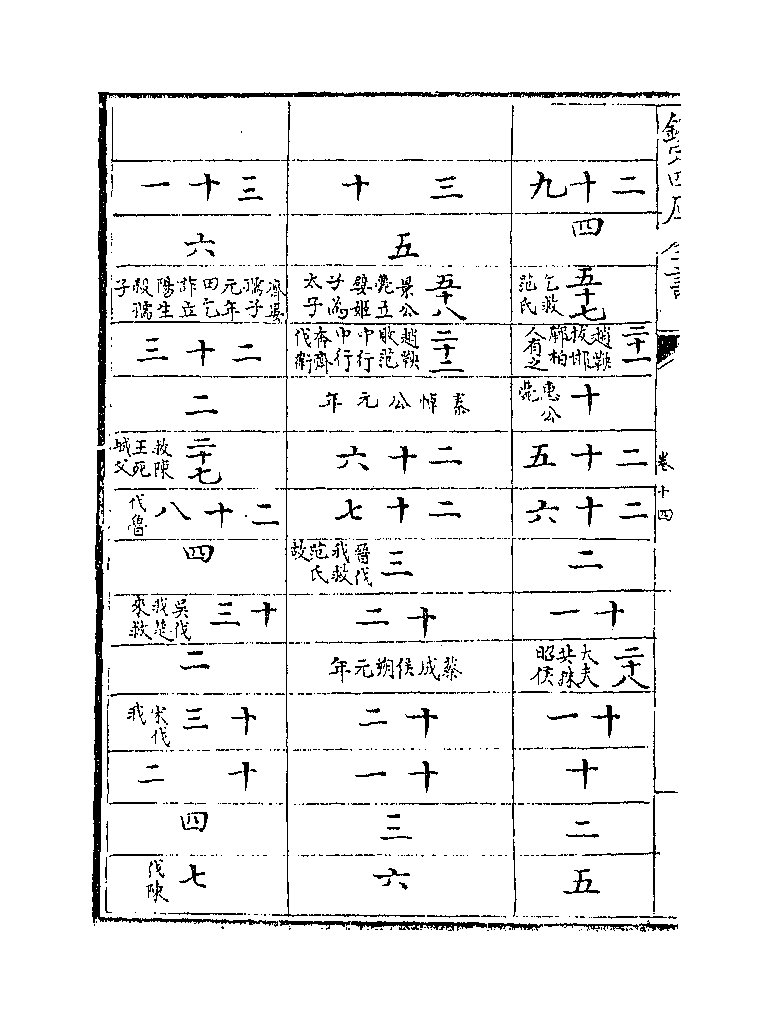 欽定四庫全書
卷十四
二十九
四
五十七 乞救范氏
二十一 趙鞅拔邯鄲柏人有之
十 惠公薨
二十五
二十六
二
十一
二十八 大夫共誅昭侯
十一
十
二
五
三十
五
五十八 景公薨立嬖姬子為太子
二十二 趙鞅敗范中行中行奔齊伐衛
秦悼公元年
二十六
二十七
三 晉伐我救范氏故
十二
蔡成侯朔元年
十二
十一
三
六
三十一
六
齊晏孺子元年田乞詐立陽生殺孺子
二十三
二
二十七 救陳王死城父
二十八 伐魯
四
十三 吳伐我楚來救
二
十三 宋伐我
十二
四
七 伐陳